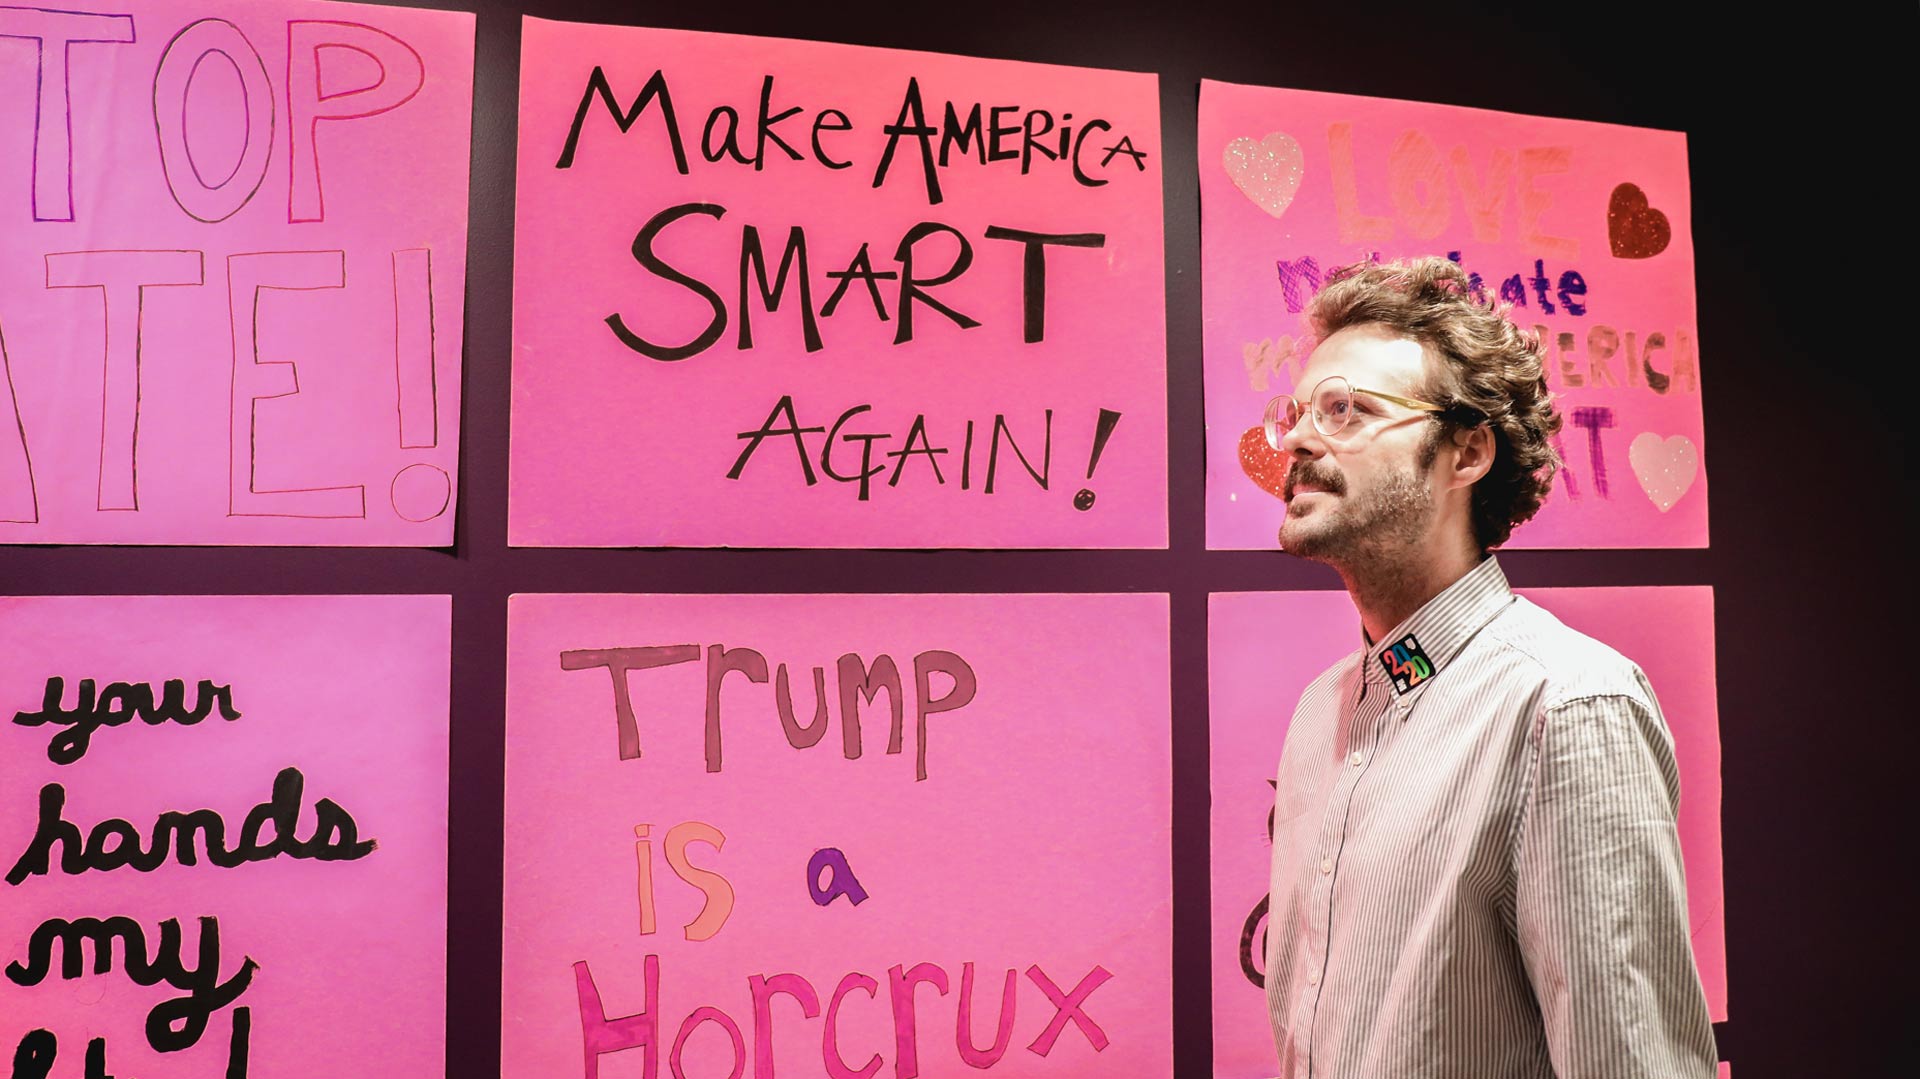 TOP
ATE!
Make AMERiCA
SMART
AGAIN!
LOVE
hate
AMERICA
AT
your
hands
my
Trump
is a
Horcrux
20
20